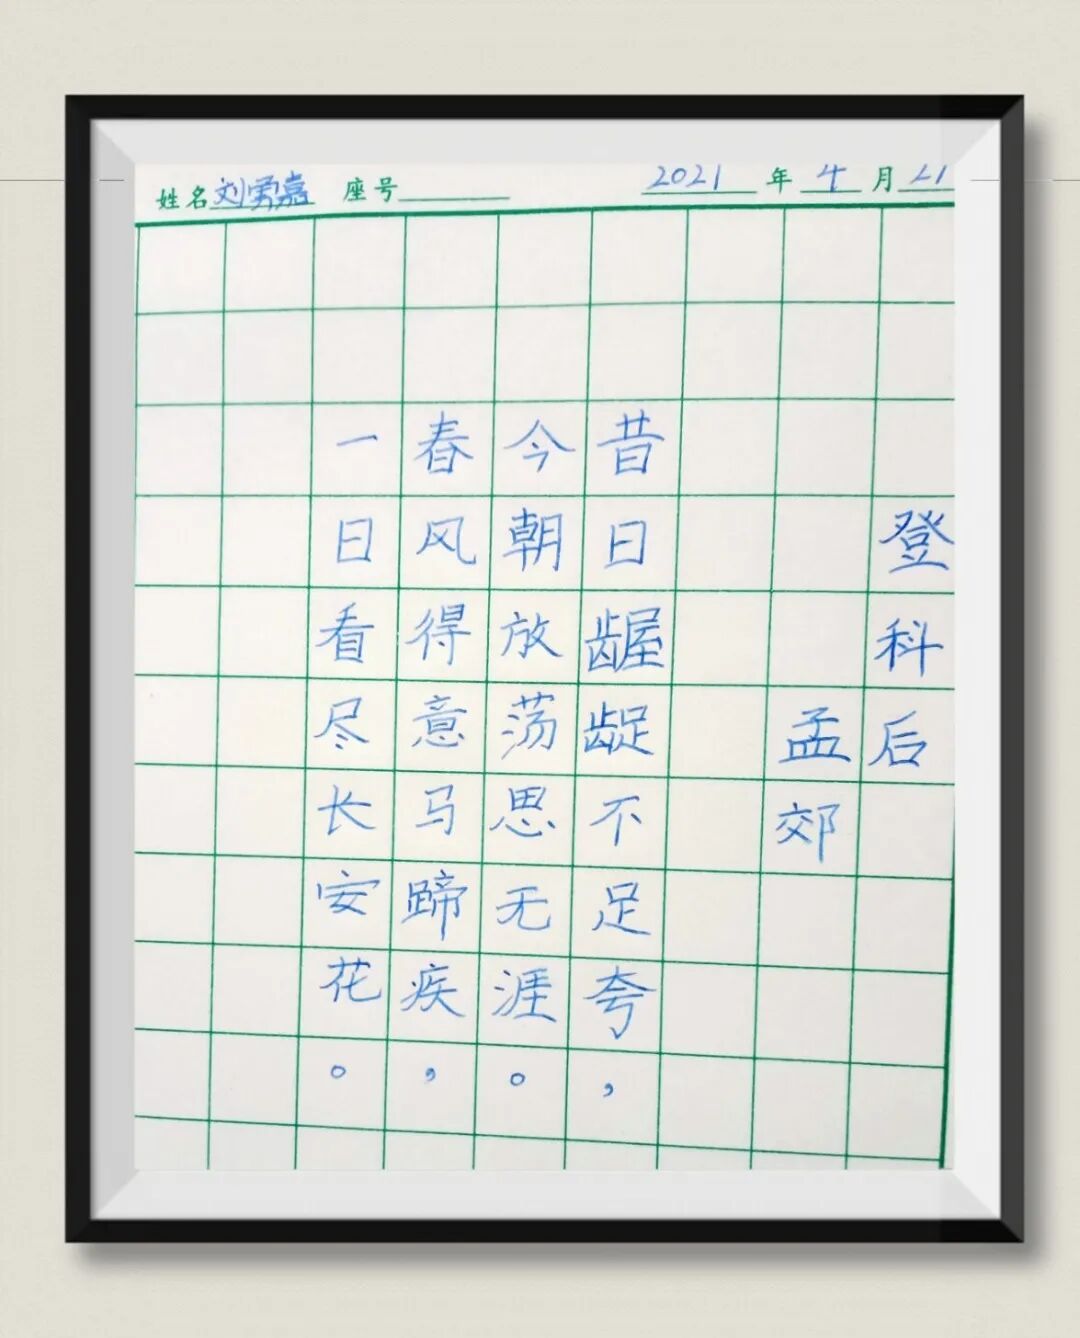 姓名刘勇嘉 座号 2021年4月21
登科后
孟郊
昔日龌龊不足夸，
今朝放荡思无涯。
春风得意马蹄疾，
一日看尽长安花。